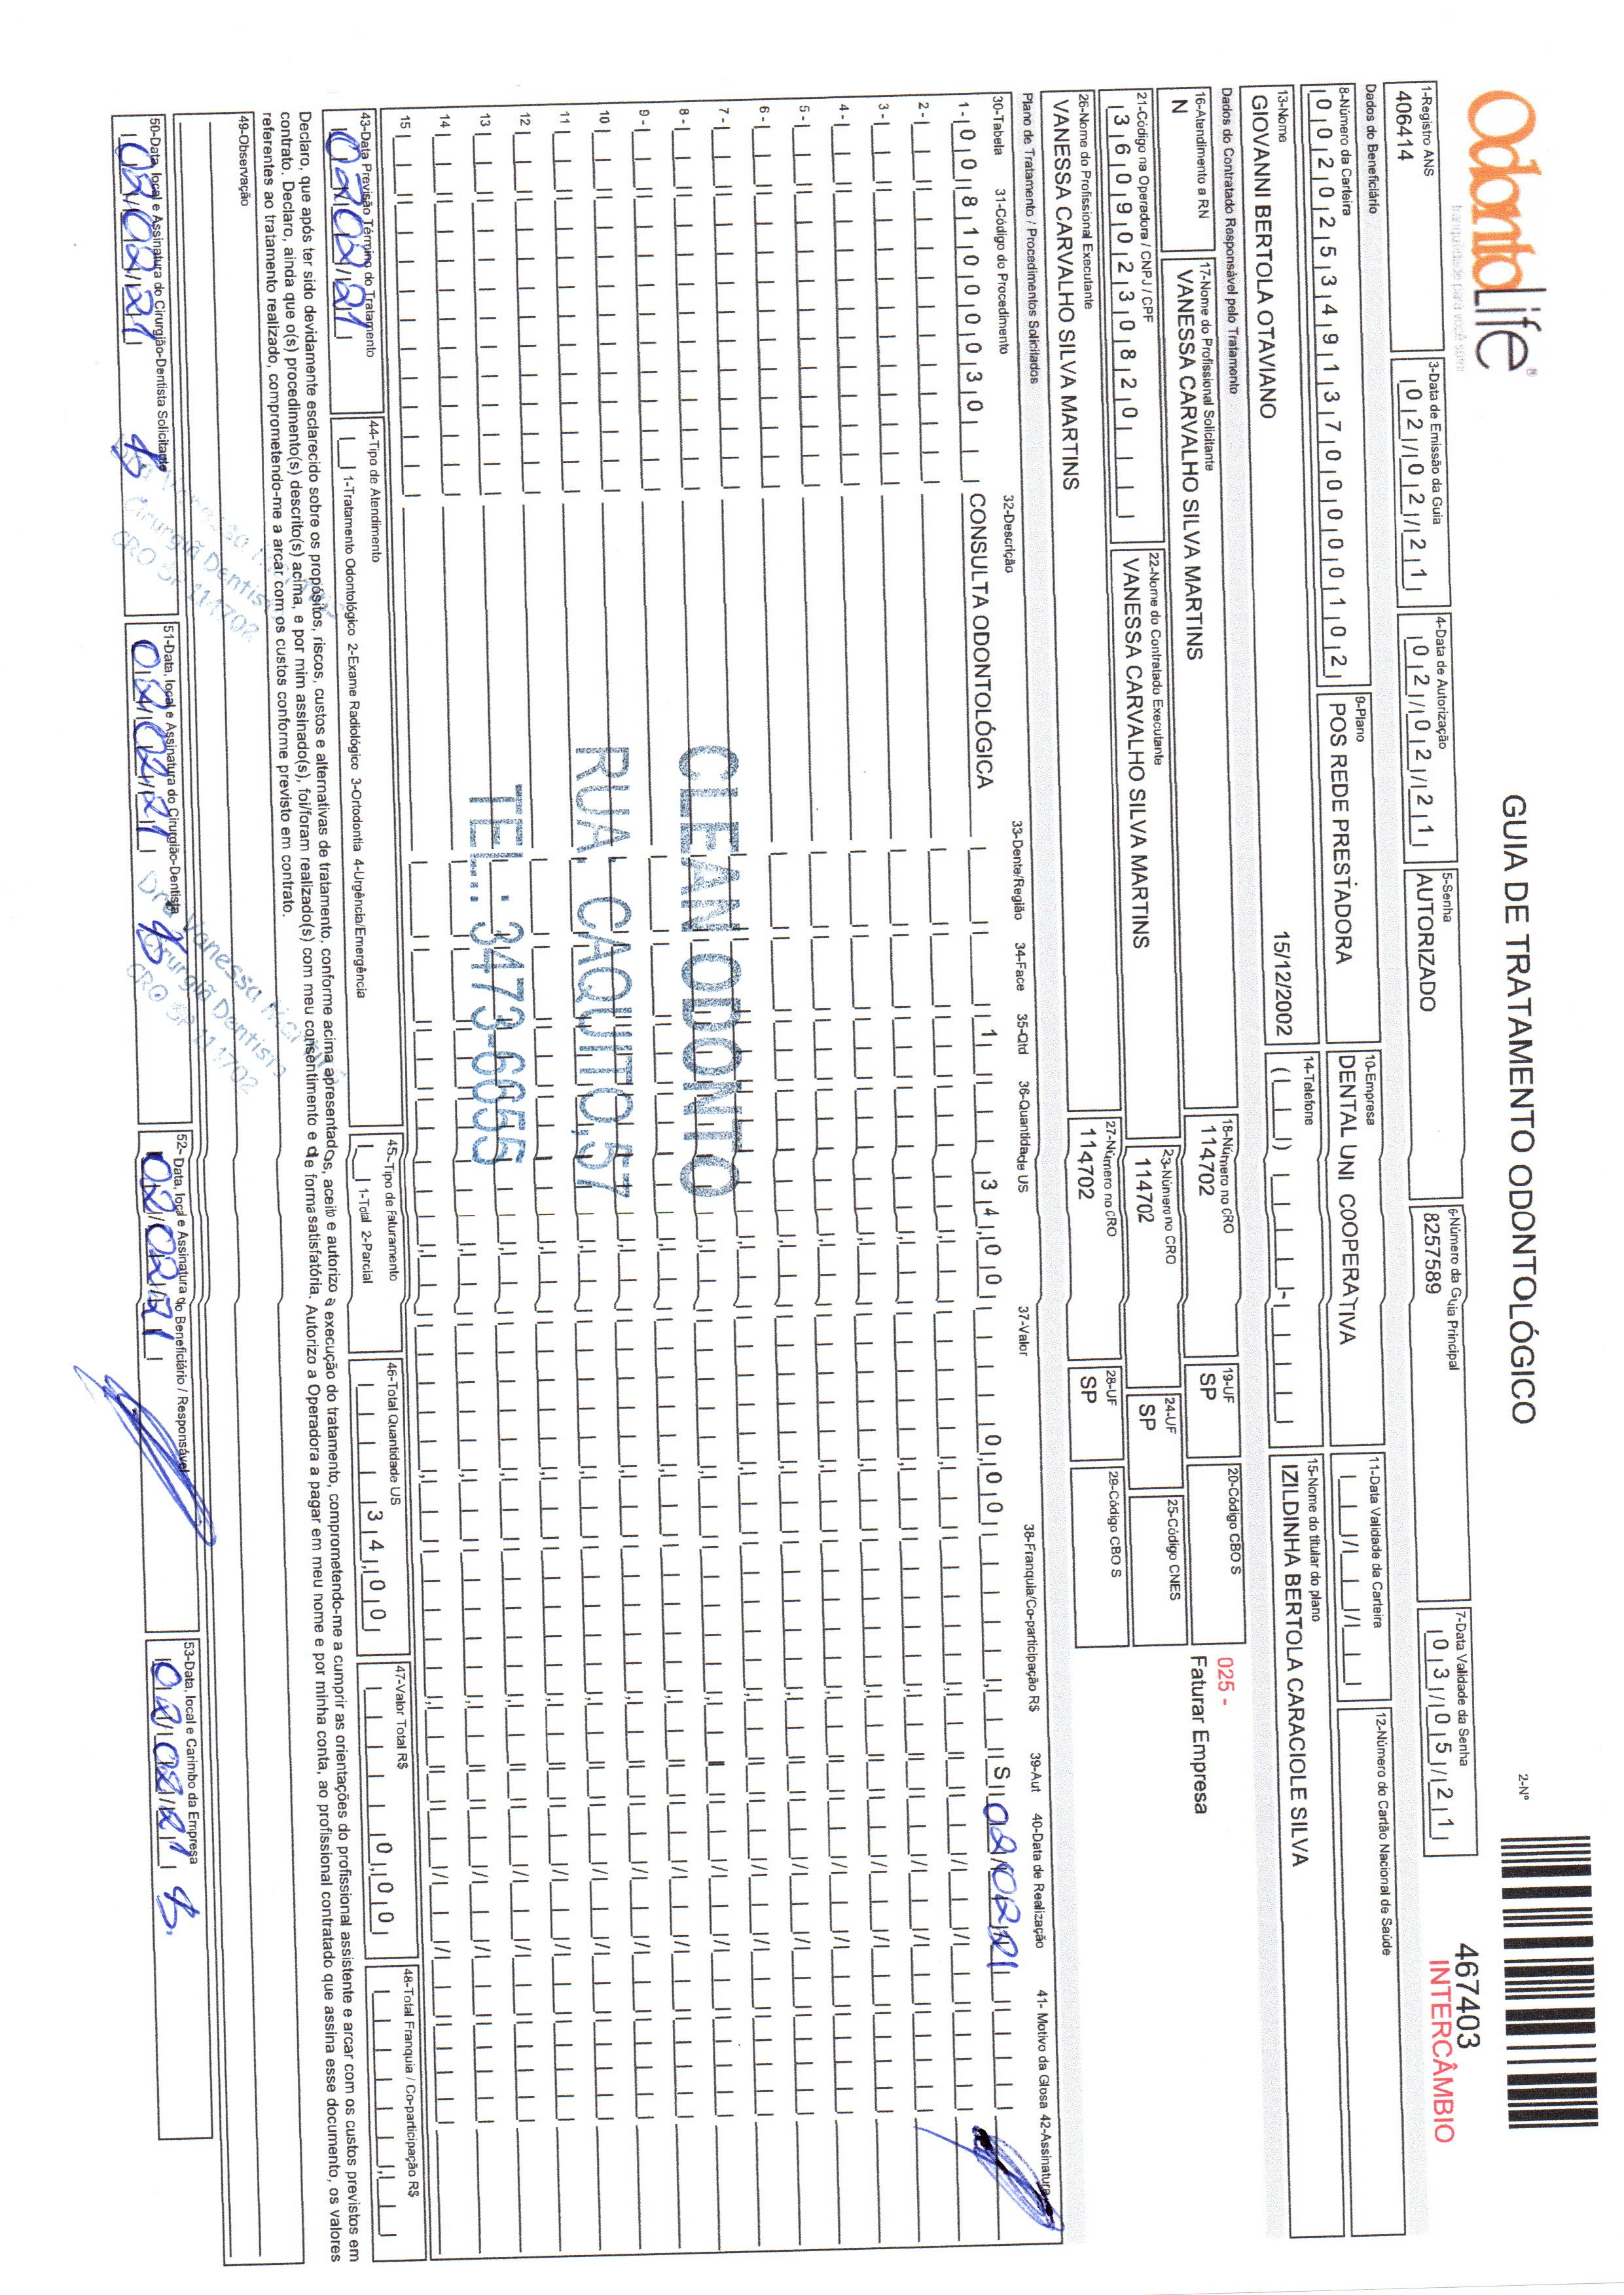 OdontoLife®
tranquilidade para você sorrir
GUIA DE TRATAMENTO ODONTOLÓGICO
2-Nº
467403
INTERCÂMBIO
1-Registro ANS
406414
3-Data de Emissão da Guia
02/02/21
4-Data de Autorização
02/02/21
5-Senha
AUTORIZADO
6-Número da Guia Principal
8257589
7-Data Validade da Senha
03/05/21
Dados do Beneficiário
8-Número da Carteira
00202534913700000102
9-Plano
POS REDE PRESTADORA
10-Empresa
DENTAL UNI COOPERATIVA
11-Data Validade da Carteira
12-Número do Cartão Nacional de Saúde
13-Nome
GIOVANNI BERTOLA OTAVIANO
15/12/2002
14-Telefone
15-Nome do titular do plano
IZILDINHA BERTOLA CARACIOLE SILVA
Dados do Contratado Responsável pelo Tratamento
16-Atendimento a RN
N
17-Nome do Profissional Solicitante
VANESSA CARVALHO SILVA MARTINS
18-Número no CRO
114702
19-UF
SP
20-Código CBO S
025 -
Faturar Empresa
21-Código na Operadora / CNPJ / CPF
36090230820
22-Nome do Contratado Executante
VANESSA CARVALHO SILVA MARTINS
23-Número no CRO
114702
24-UF
SP
25-Código CNES
26-Nome do Profissional Executante
VANESSA CARVALHO SILVA MARTINS
27-Número no CRO
114702
28-UF
SP
29-Código CBO S
Plano de Tratamento / Procedimentos Solicitados
30-Tabela 31-Código do Procedimento 32-Descrição 33-Dente/Região 34-Face 35-Qtd 36-Quantidade US 37-Valor 38-Franquia/Co-participação R$ 39-Aut 40-Data de Realização 41- Motivo da Glosa 42-Assinatura
1- 00 81000030 CONSULTA ODONTOLÓGICA 1 34,00 0,00 S 02/02/21
2 -
3 -
4 -
5 -
6 -
7 -
8 -
9 -
10
11
12
13
14
15
CLEAN ODONTO
RUA CAQUITO,57
TEL.: 3473-6655
43-Data Previsão Término do Tratamento
02/02/21
44-Tipo de Atendimento
1-Tratamento Odontológico 2-Exame Radiológico 3-Ortodontia 4-Urgência/Emergência
45-Tipo de Faturamento
1-Total 2-Parcial
46-Total Quantidade US
34,00
47-Valor Total R$
0,00
48-Total Franquia / Co-participação R$
Declaro, que após ter sido devidamente esclarecido sobre os propósitos, riscos, custos e alternativas de tratamento, conforme acima apresentados, aceito e autorizo a execução do tratamento, comprometendo-me a cumprir as orientações do profissional assistente e arcar com os custos previstos em
contrato. Declaro, ainda que o(s) procedimento(s) descrito(s) acima, e por mim assinado(s), foi/foram realizado(s) com meu consentimento e de forma satisfatória. Autorizo a Operadora a pagar em meu nome e por minha conta, ao profissional contratado que assina esse documento, os valores
referentes ao tratamento realizado, comprometendo-me a arcar com os custos conforme previsto em contrato.
49-Observação
50-Data, local e Assinatura do Cirurgião-Dentista Solicitante
02/02/21
Dra Vanessa Martins
Cirurgiã Dentista
CRO SP 114702
51-Data, local e Assinatura do Cirurgião-Dentista
02/02/21
Dra Vanessa Martins
Cirurgiã Dentista
CRO SP 114702
52- Data, local e Assinatura do Beneficiário / Responsável
02/02/21
53-Data, local e Carimbo da Empresa
02/02/21